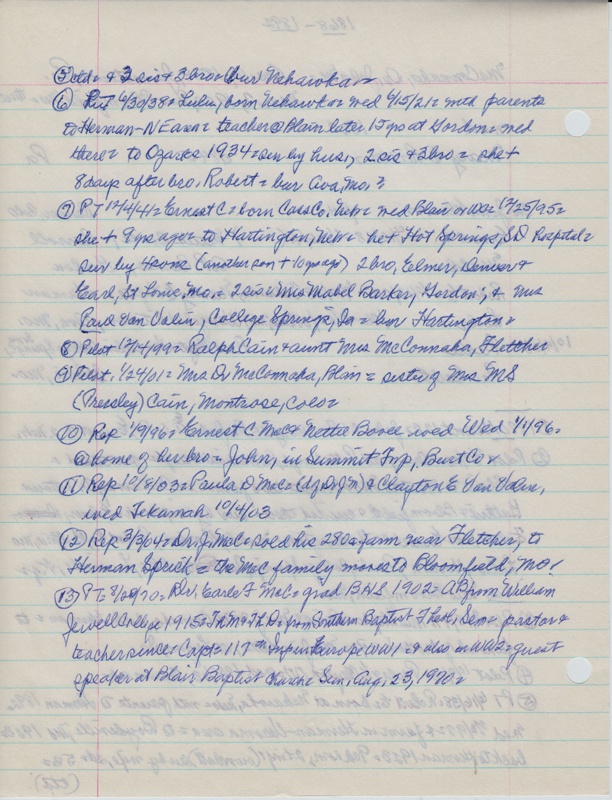 ⑤ & 2 sis & 3 bro = (bur) Nehawka =
⑥ 6/30/38 = Lulu, born Nehawka = mvd 4/15/21 = with parents
to Herman - N Eaan = teacher @ Blain later 15 yo at Gordon = med
there = to Ozarks 1934 = sur by hus, 2 sis & 3 bro = she +
8 days after bro, Robert = bur Ava, Mo. ?
⑦ PT 12/4/41 = Ernest C = born Cass Co, Neb = med Blair 12/25/95 =
she + 9 yrs ago = to Hartington, Neb = he + Hot Springs, SD Hospital =
sur by 4 sons (another son + 10 yo ago) 2 bro, Elmer, Denver &
Earl, St Louis, Mo, = 2 sis = Mrs Mabel Barker, Gordon, & Mrs
Paul Van Valin, College Springs, Ia = bur Hartington =
⑧ Pilot 12/14/99 = Ralph Cain & aunt Mrs McConnaha, Fletcher
⑨ Pilot, 1/24/01 = Mrs Dr McConnaha, Blair = sister of Mrs MS
(Pressley) Cain, Montrose, Colo =
⑩ Rep 1/9/96 = Ernest C McC & Nettie Bovee wed Wed 1/1/96 =
@ home of her bro = John, in Summit Twp, Burt Co =
⑪ Rep 10/8/03 = Paula D McC = (d of Dr J M) & Clayton E Van Valin,
wed Tekamah 10/4/03
⑫ Rep 3/3/04 = Dr. J. McC = sold his 280 a farm near Fletcher, to
Herman = the McC family moves to Bloomfield, Mo!
⑬ PT 8/20/70 = Rev. Earle F McC = grad BHS 1902 = AB from William
Jewell College 1915 = Th M & Th D = from Southern Baptist Theol, Sem = pastor &
teacher since = Capt = 117th in Europe WW1 = & also in WW2 = guest
speaker at Blair Baptist Church = Sun, Aug, 23, 1970 =